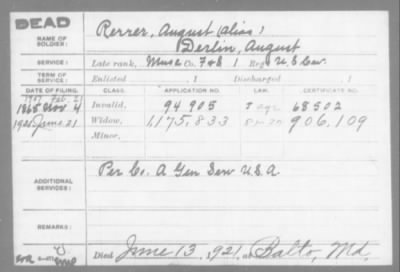 DEAD
NAME OF SOLDIER: Rerrer, August (alias)
Derlin, August
SERVICE: Late rank, Mus & Co. F&S 1 Reg U.S. Cav.
TERM OF SERVICE: Enlisted , 1 Discharged , 1
DATE OF FILING. CLASS. APPLICATION NO. LAW. CERTIFICATE NO.
1907 Feb. 21
1865 Nov 4 Invalid, 94 905 68502
1921 June 21 Widow, 1,175,833 906,109
Minor,
ADDITIONAL SERVICES: Per Co. A Gen Serv U.S.A.
REMARKS:
Died June 13, 1921, at Balto, Md.